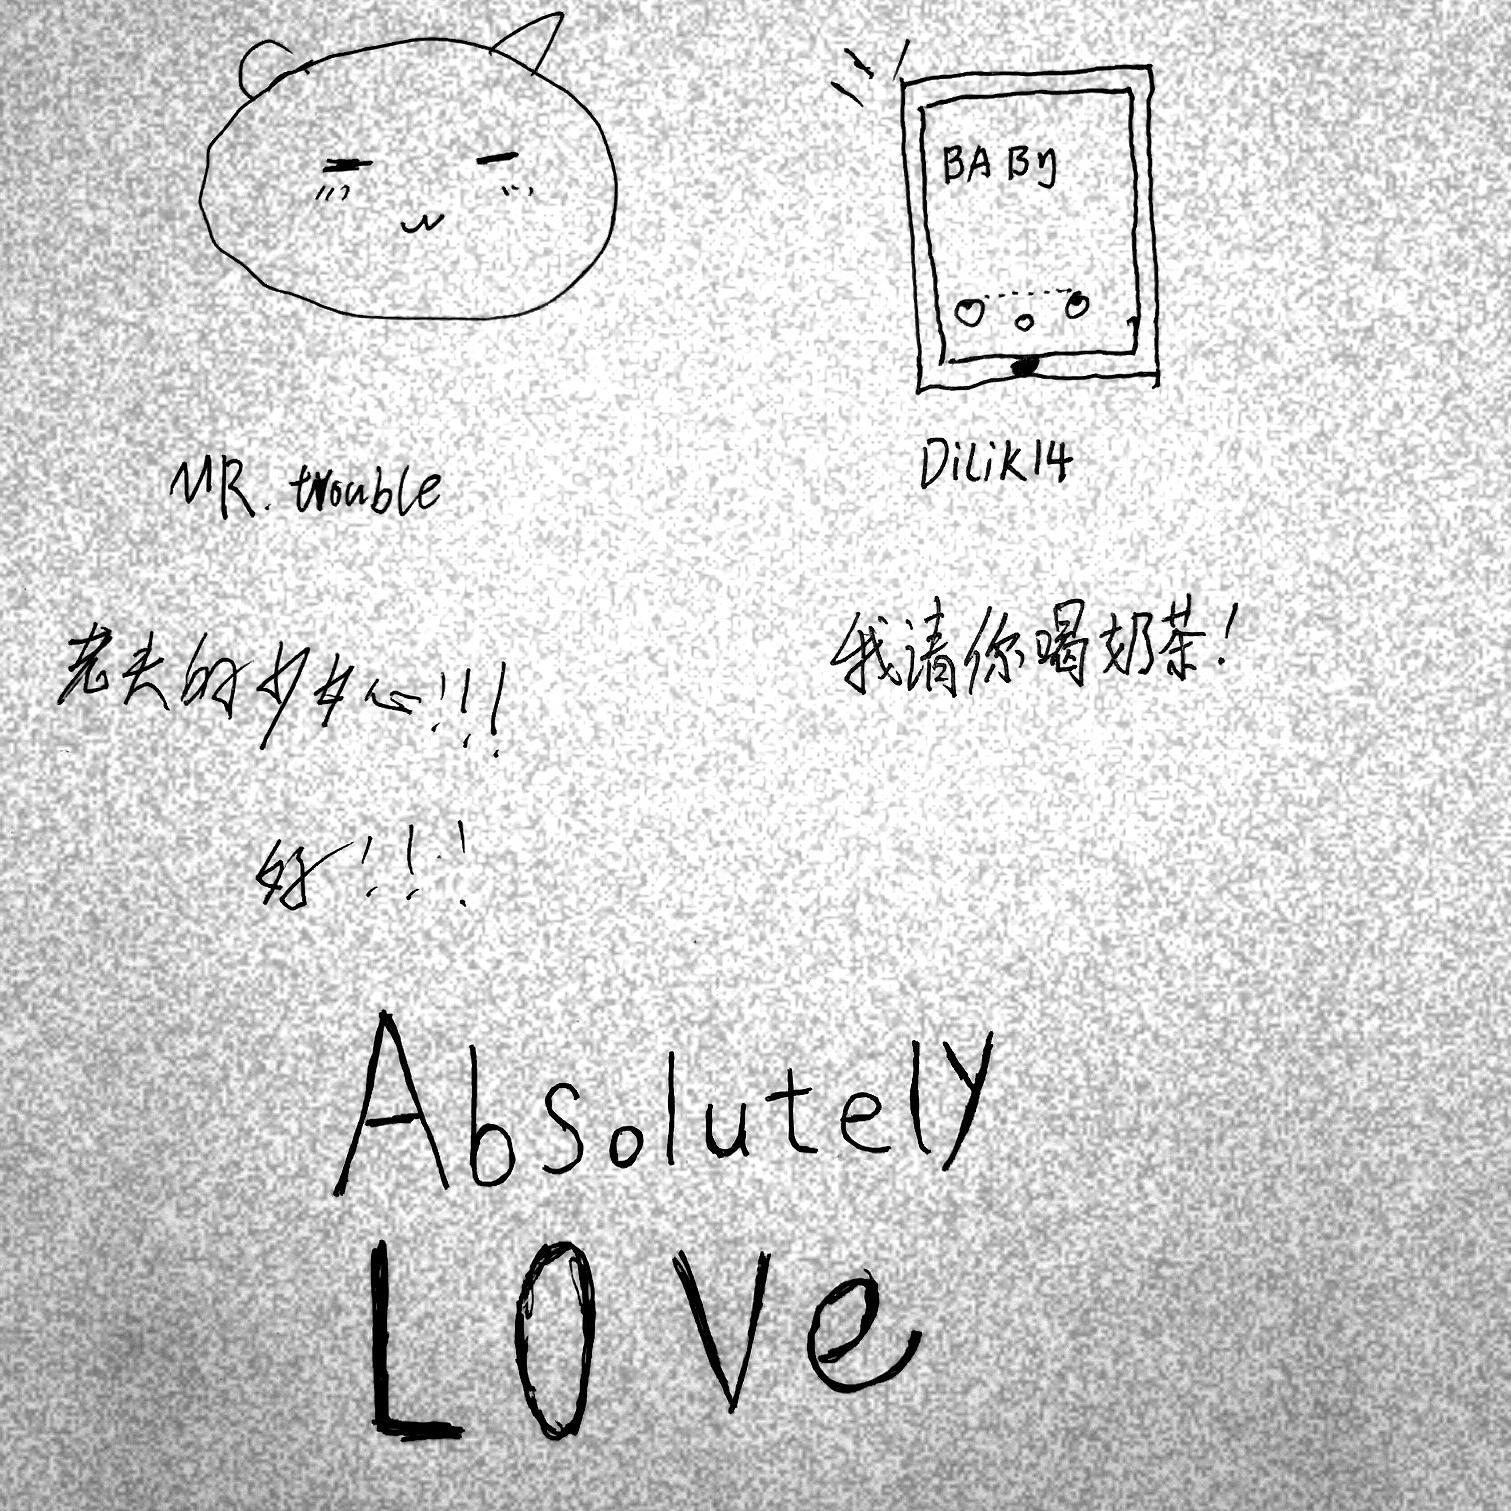 BABy
MR. trouble
DiLiK14
老夫的少女心!!!
我请你喝奶茶!
好!!!
Absolutely
LOVe